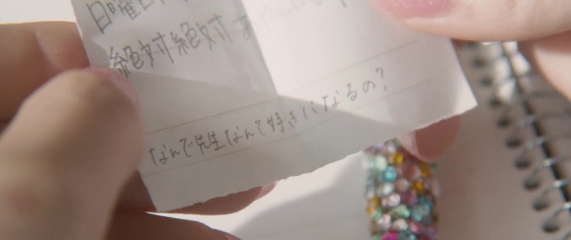 日曜日
絶対絶対
なんで先生なんて好きになるの?